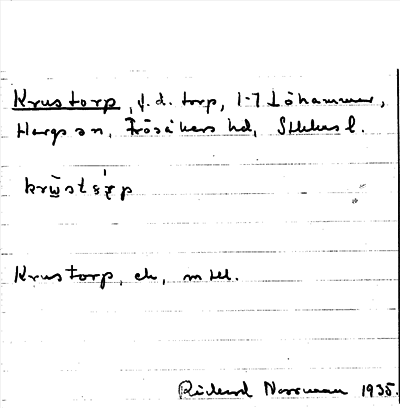 Krustorp, f.d. torp, 1-7 Löhammar,
Hargs sn, Frösåkers hd, Sthlms l.
Krustorp, ek, mtl.
Rickard Norrman 1935.